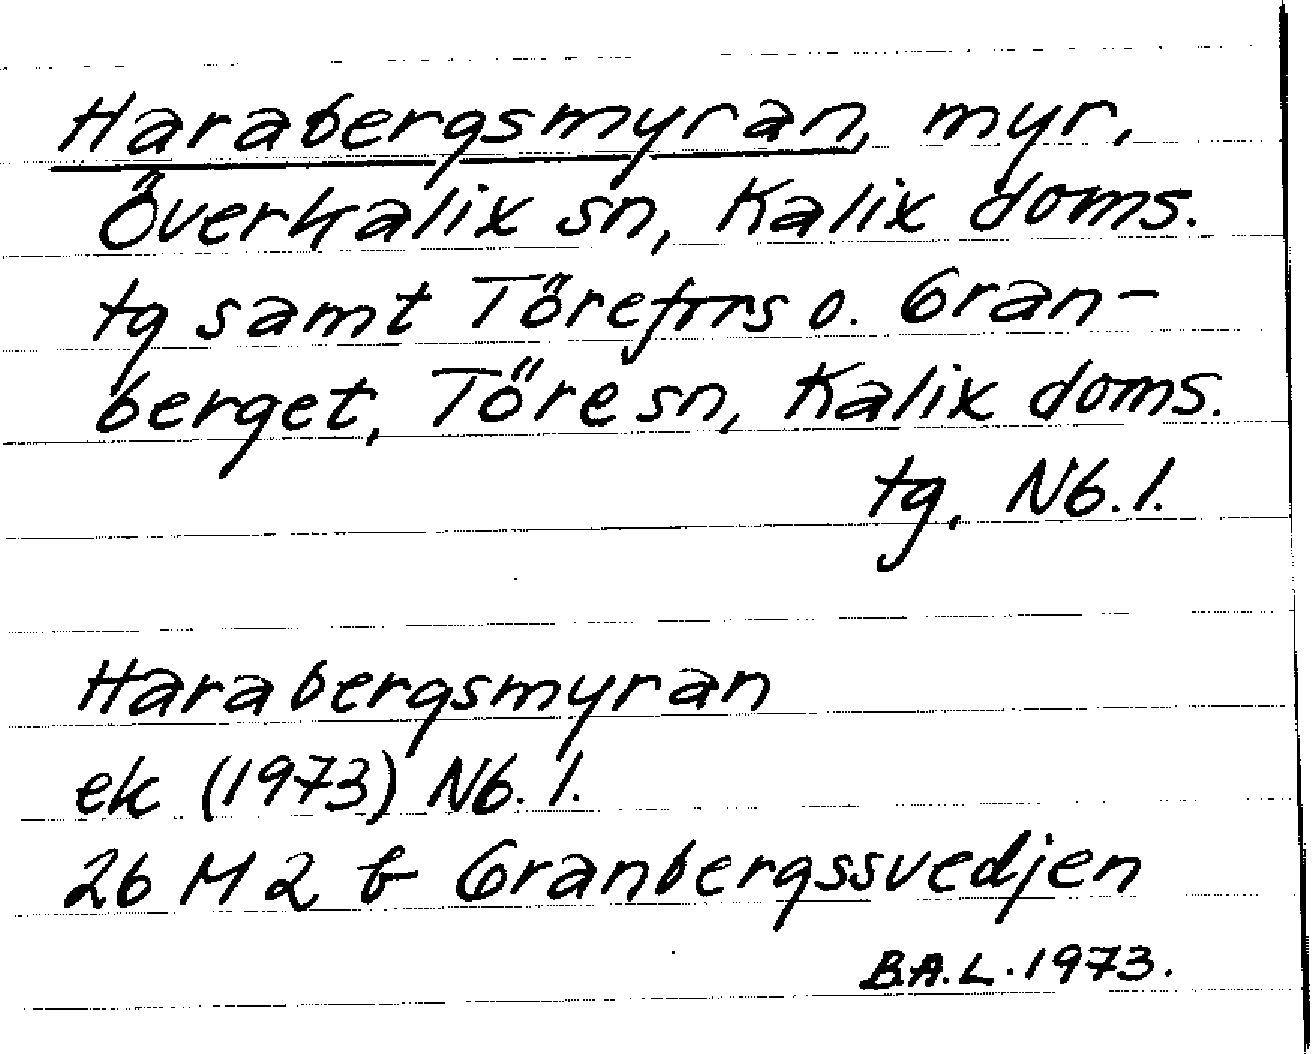 Harabergsmyran, myr,
Överkalix sn, Kalix doms.
tg samt Törefors o. Gran-
berget, Töre sn, Kalix doms.
tg, Nb. l.
Harabergsmyran
ek (1973) Nb. l.
26 M 2 b Granbergssvedjen
B.A.L. 1973.